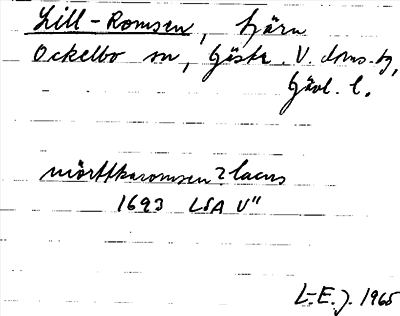 Lill-Romsen, tjärn
Ockelbo sn, Gästr. V. doms.
Gävl. l.
mörttkaromsen? lacus
1693 LSA V"
L-E. J. 1965